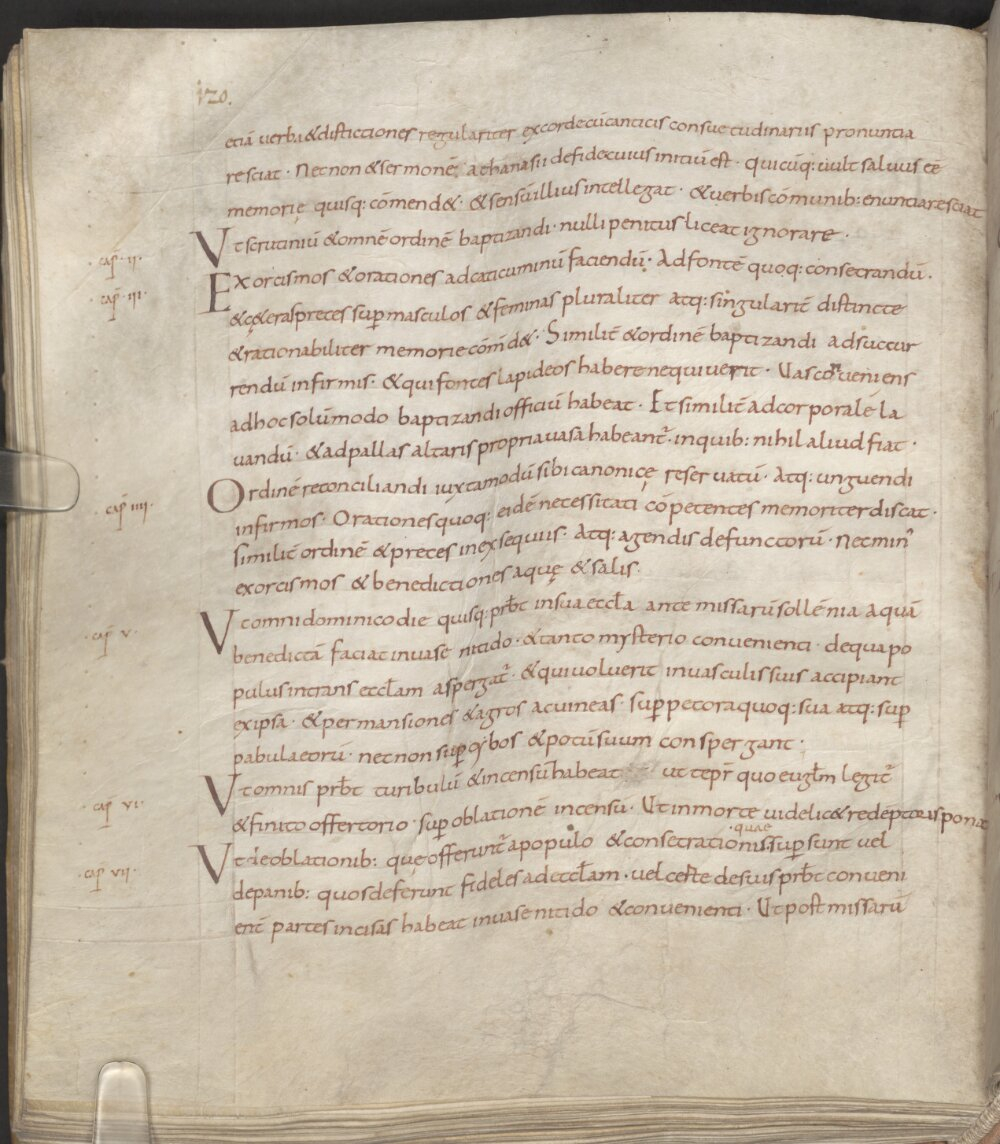 120.
etiā verba & distictiones regulariter ex corde cū canticis consuetudinariis pronuntia
re sciat · Nec non & sermonē athanasii de fide cuius initiū est · quicūq: uult saluus eē
memorię quisq: cōmend& · & sensū illius intellegat · & uerbis cōmunib: enuntiare sciat
cap̄ · II · Vt scrutiniū & omnē ordinē baptizandi · nulli penitus liceat ignorare ·
cap̄ · III · Exorcismos & orationes ad caticuminū faciendū · Ad fontē quoq: consecrandū ·
& cęteras preces sup masculos & feminas pluraliter atq: singularit̄ distincte
& rationabiliter memorie cōmd& · Similit̄ & ordinē baptizandi ad succur
rendū infirmis · & qui fontes lapideos habere nequiverit · Uas conveniens
ad hoc solūmodo baptizandi officiū habeat · Et similit̄ ad corporale la
uandū · & ad pallas altaris propria uasa habeant᷑ · in quib: nihil aliud fiat ·
cap̄ IIII · Ordinē reconciliandi iuxta modū sibi canonicę reseruatū · Atq: unguendi
infirmos · Orationes quoq: eidē necessitati cōpetentes memoriter discat ·
similit̄ ordinē & preces in exsequiis · Atq: agendis defunctorū · Nec min᾿
exorcismos & benedictiones aquę & salis ·
· cap̄ V · Vt omni dominico die quisq: prb̄t in sua eccl̄a ante missarū sollēnia aquā
benedictā faciat in uase nitido · & tanto mysterio convenienti · de qua po
pulus intrans eccl̄am aspergat᷑ · & qui voluerit in uasculis suis accipiant
ex ipsa · & per mansiones & agros ac uineas · sup pecora quoq: sua atq: sup
pabula eorū · nec non sup cybos & potū suum conspergant ·
cap̄ VI · Vt omnis prb̄t turibulū & incensū habeat ut tepr̄ quo eugl̄m legit᷑
& finito offertorio · sup oblationē incensū · Ut in morte uidelic& redēptoris ponat
· quae
· cap̄ VII · Vt de oblationib: quę offerunt᷑ a populo & consecrationis sup sunt vel
de panib: quos deferunt fideles ad eccl̄am · vel certe de suis prb̄t conveni
ent̄ partes incisas habeat in uase nitido & convenienti · Ut post missarū